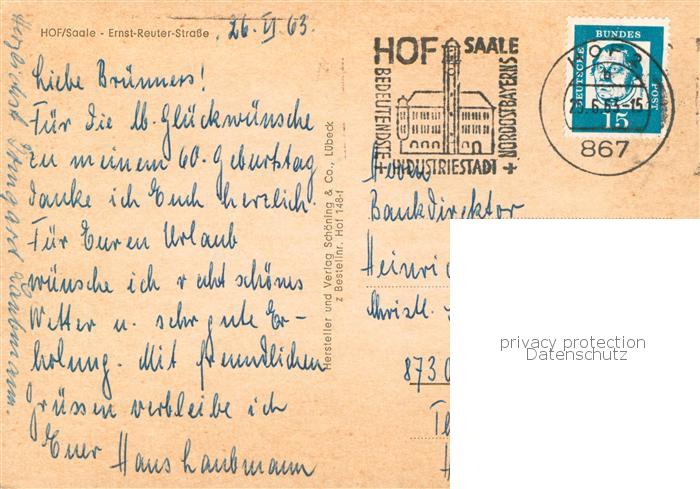 HOF/Saale - Ernst-Reuter-Straße
26. VI 63.
Liebe Brünners!
Für die lb. Glückwünsche
zu meinem 60. Geburtstag
danke ich Euch herzlich.
Für Euren Urlaub
wünsche ich recht schönes
Wetter u. sehr gute Er-
holung. Mit freundlichen
Grüssen verbleibe ich
Euer Hans Laubmann
Herzlichst Irmgard Laubmann.
Hersteller und Verlag Schöning & Co., Lübeck
z Bestellnr. Hof 148-f
HOF SAALE
BEDEUTENDSTE
INDUSTRIESTADT
NORDOSTBAYERNS
HOF
867
DEUTSCHE
BUNDES
POST
15
Herrn
Bankdirektor
Heinri
Christl.
873
privacy protection
Datenschutz